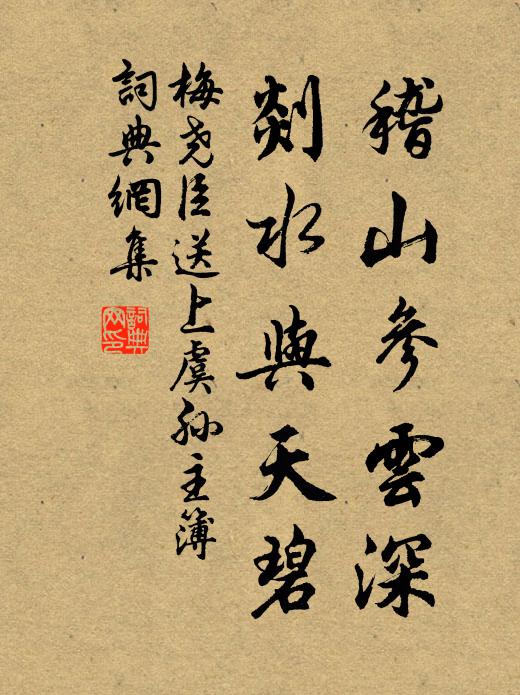 稽山參雲深
剡水與天碧
梅堯臣送上虞孫主簿
詞典網集
詞典網印